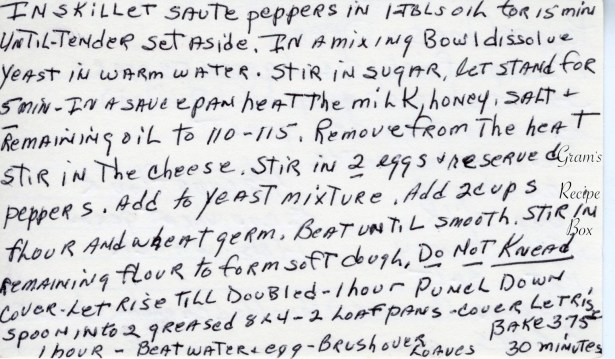 IN SKILLET SAUTE peppers IN 1-TBLS OIL for 15 min
UNTIL-TENder Set Aside. IN A mixing Bowl dissolve
YEAST IN WARM WATER. STIR IN SUGAR, let STAND FOR
5 min - IN A SAUCEPAN heat The milk, honey, SALT +
REMAINING OIL to 110-115. Remove from The heAT
STIR IN The cheese. STIR IN 2 eggs + reserved
peppers. Add to YEAST MIXTURE. Add 2 cups
flour ANd wheat germ. BEAT UNTIL SMOOTH. STIR IN
REMAINING flour to form soft dough, Do NOT KNEAD
COVER-Let RISE TILL DOUBLED-1hour - PUNCH DOWN
SPOON INTO 2 GREASED 8x4-2 LOAF PANS - COVER LET RISE
1 hour - BEAT WATER + egg - BRUSH OVER LOAVES
BAKE 375°
30 MINUTES
Gram's
Recipe
Box